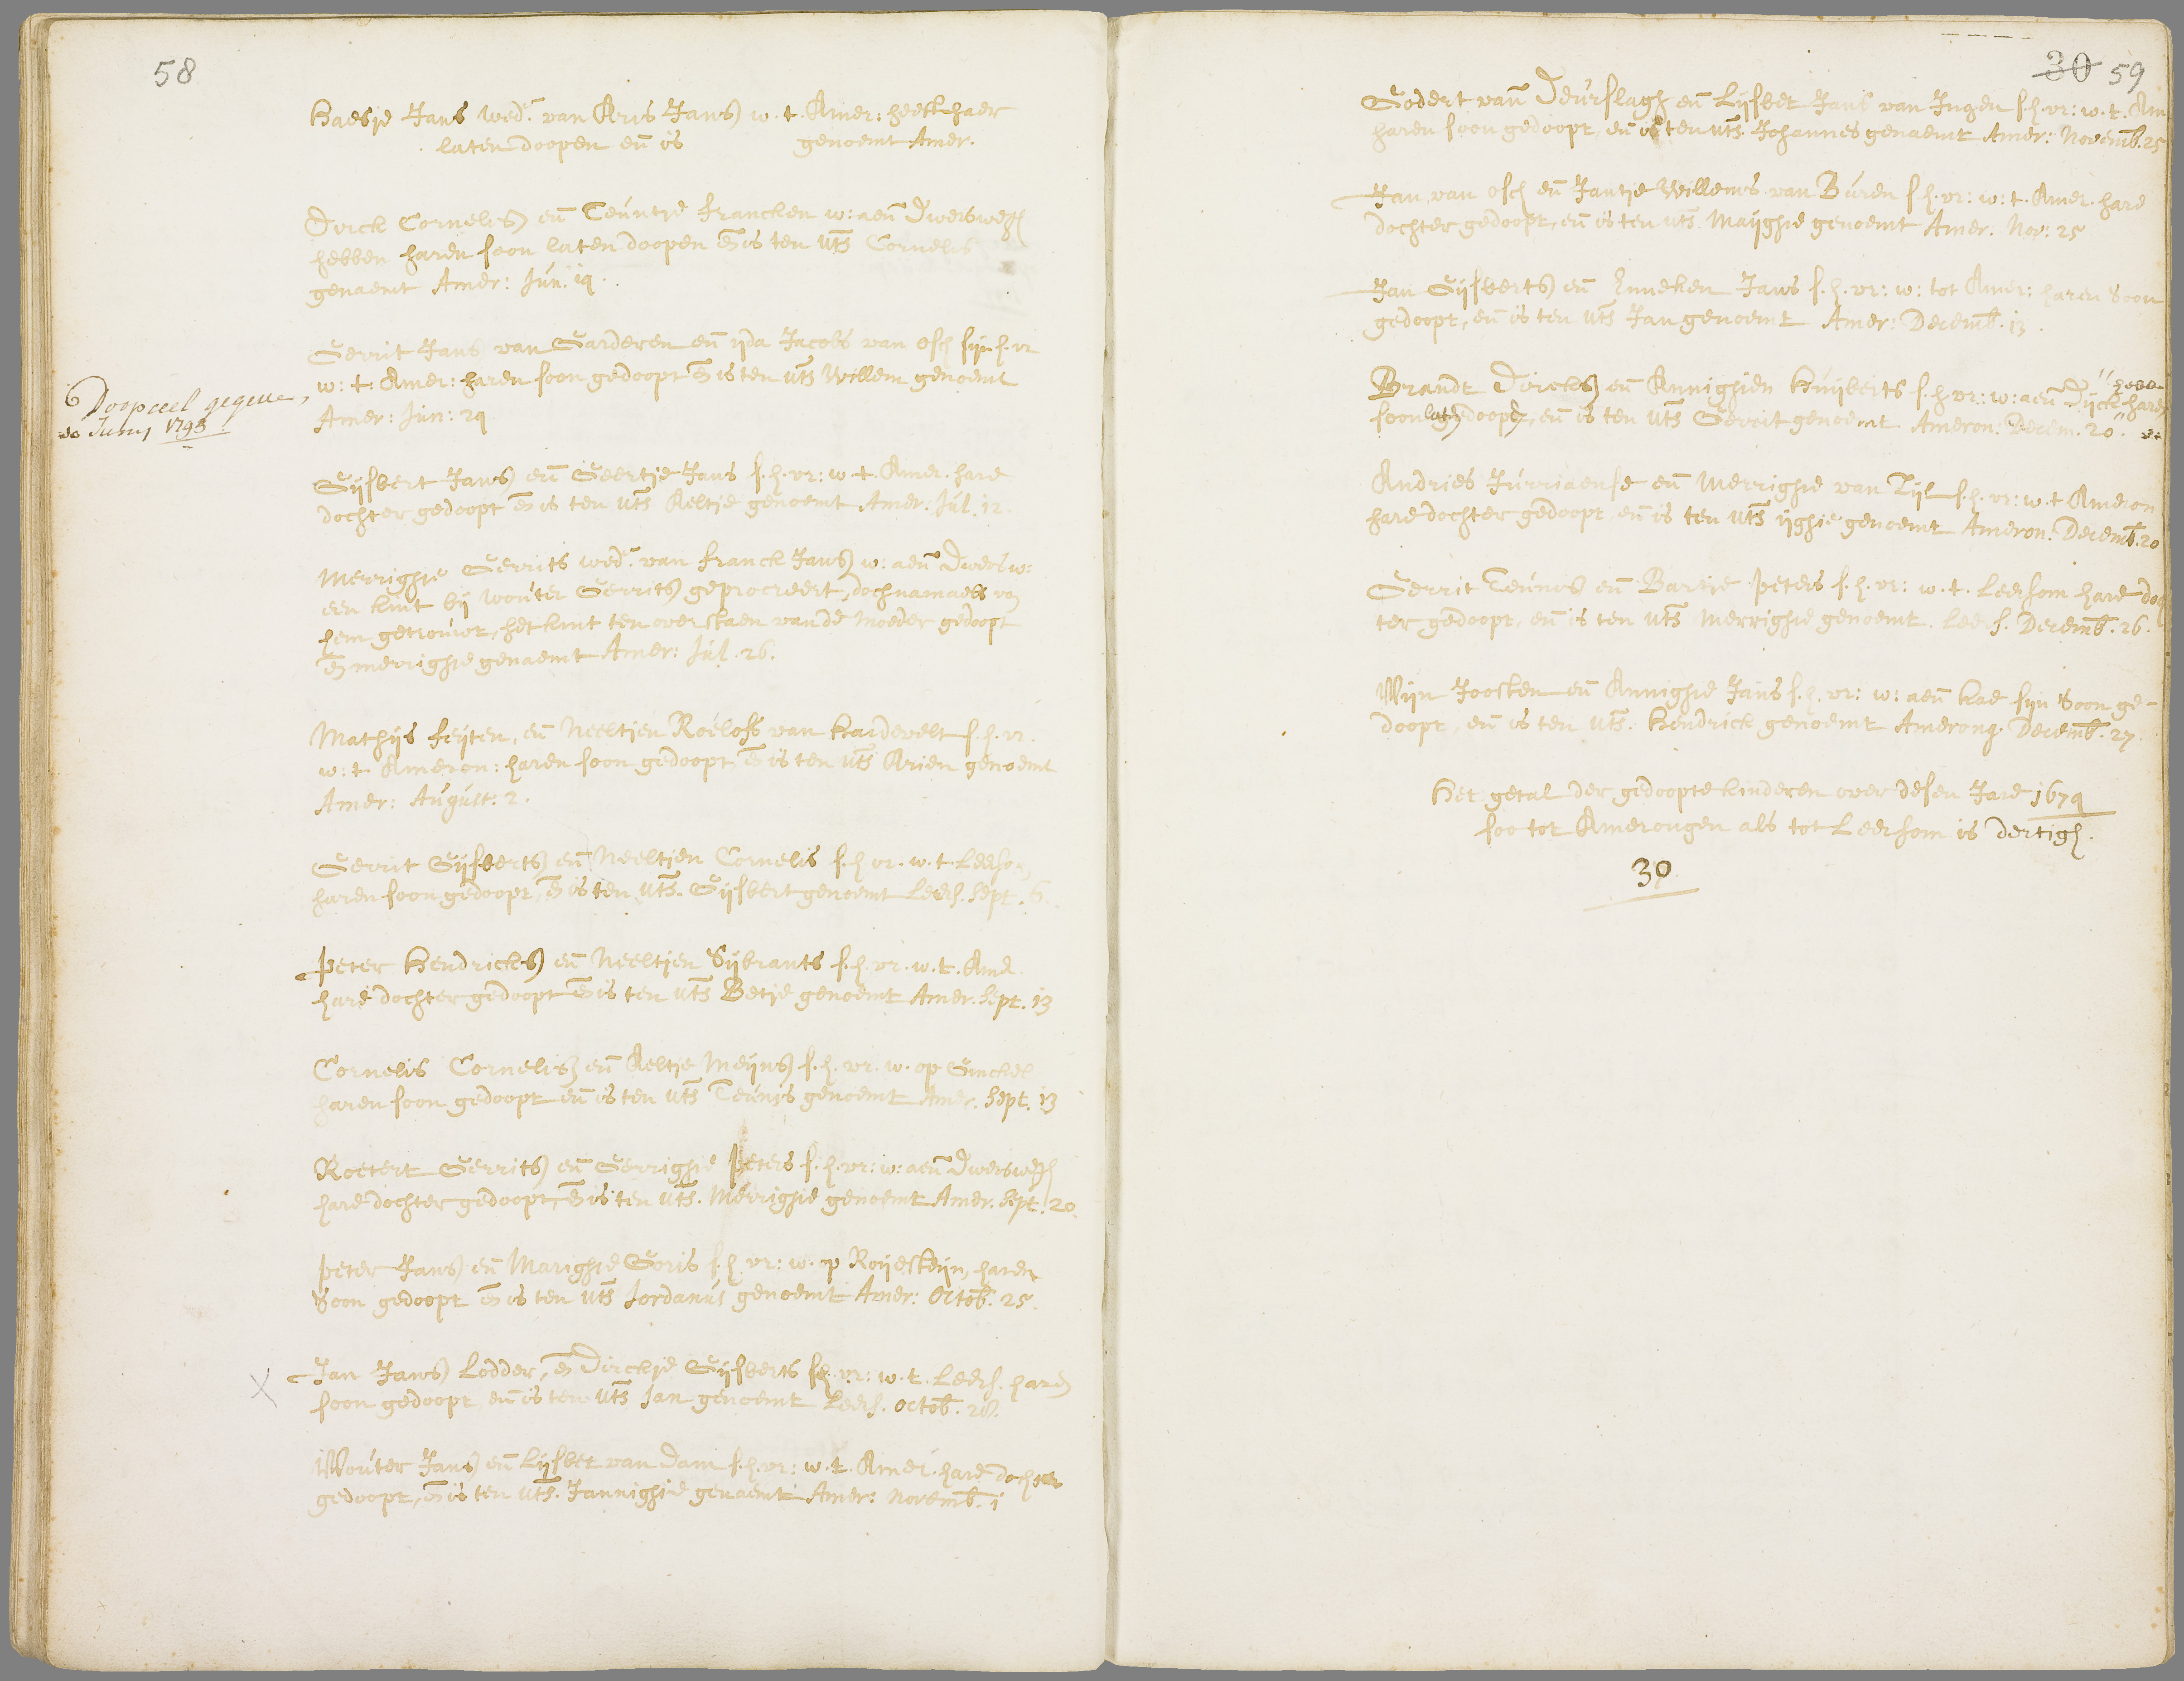 58
Haesje Jans wed.e van Aris Jans) w. t. Amer: heeft haer
laten doopen eñ is genoemt Amer.
Dirck Cornelis) eñ Teuntje francken w: aeñ Dwerswegh
hebben haren soon laten doopen eñ is ten uts Cornelis
genaemt Amer: Jun. 19.
Gerrit Jans van Garderen eñ ijda Jacobs van Osch sijn h. vr
w: t: Amer: haren soon gedoopt eñ is ten uts Willem genoemt
Amer: Jun: 29
Doopceel gegeven
Juny 1793
Gijsbert Jans) eñ Geertje Jans s. h. vr: w. t. Amer. hare
dochter gedoopt eñ is ten uts Aeltje genoemt Amer: Jul. 12.
Merrighie Gerrits wed.e van franck Jans) w: aeñ Dwersw:
een kint bij Wouter Gerrits) geprocreert, doch namaels von
hem getrouwt, het kint ten overstaen van de Moeder gedoopt
eñ merrighie genaemt Amer: Jul. 26.
Mathijs feijten, eñ Neeltjen Roelofs van Hardevelt s. h. vr.
w: t. Ameron: haren soon gedoopt, eñ is ten uts Arien genoemt
Amer: August: 2.
Gerrit Gijsberts) eñ Neeltjen Cornelis s. h. vr. w. t. Leerso
haren soon gedoopt, eñ is ten uts. Gijsbert genoemt Leers. Sept. 6.
Peter Hendricks) eñ Neeltjen Sijbrants s. h. vr. w. t. Ame.
hare dochter gedoopt eñ is ten uts Betje genoemt Amer. Sept. 13
Cornelis Cornelis) eñ Aeltje Meijns) s. h. vr. w. op Ginckel
haren soon gedoopt eñ is ten uts Teunis genoemt Amer. Sept. 13
Roetert Gerrits) eñ Gerrighie Peters s. h. vr: w: aeñ Dwerswegh
hare dochter gedoopt, eñ is ten uts. Merrighie genoemt Amer. Sept. 20.
Peter Jans) eñ Marighie Goris s. h. vr: w. op Roijesteijn, haren
Soon gedoopt eñ is ten uts Jordanus genoemt Amer: Octob. 25.
Jan Jans) Lodder, eñ Dirckje Gijsberts s. h. vr: w. t. Leers. haren
soon gedoopt eñ is ten uts Jan genoemt Leers. Octob. 28.
Wouter Jans) eñ Lijsbet van Dam s. h. vr: w. t. Amer. hare dochter
gedoopt, eñ is ten uts. Jannighie genaemt Amer: Novemb. 1
30 59
Godert vañ Deurslagh eñ Lijsbet Jans van Ingen s. h. vr: w. t. Am
haren soon gedoopt, eñ is ten uts. Johannes genaemt Amer: Novemb. 25
Jan van Osch eñ Jantje Willems van Buren s. h. vr: w: t. Amer. hare
dochter gedoopt, eñ is ten uts. Maijghie genoemt Amer. Nov: 25
Jan Gijsberts) eñ Enneken Jans s. h. vr: w: tot Amer: haren Soon
gedoopt, eñ is ten uts Jan genoemt Amer: Decemb. 13.
Brandt Dircks) eñ Annighien Huijberts s. h. vr: w: aeñ Dijck haren
soon gedoopt, eñ is ten uts Gerrit genoemt Ameron. Decem. 20.
Andries Jurriaense eñ Merrighie van Tijl s. h. vr: w. t. Ameron
hare dochter gedoopt eñ is ten uts ijghie genoemt Ameron: Decemb. 20
Gerrit Teunis) eñ Bartje Peters s. h. vr: w. t. Leersom hare doch
ter gedoopt, eñ is ten uts Merrighie genoemt. Leers. Decemb. 26.
Wijn Joosten eñ Annighie Jans s. h. vr: w: aeñ Hae sijn Soon ge-
doopt, eñ is ten uts. Hendrick genoemt Amerong. Decemb. 27.
Het getal der gedoopte kinderen over desen Jare 1679
soo tot Amerongen als tot Leersom is dertigh.
30